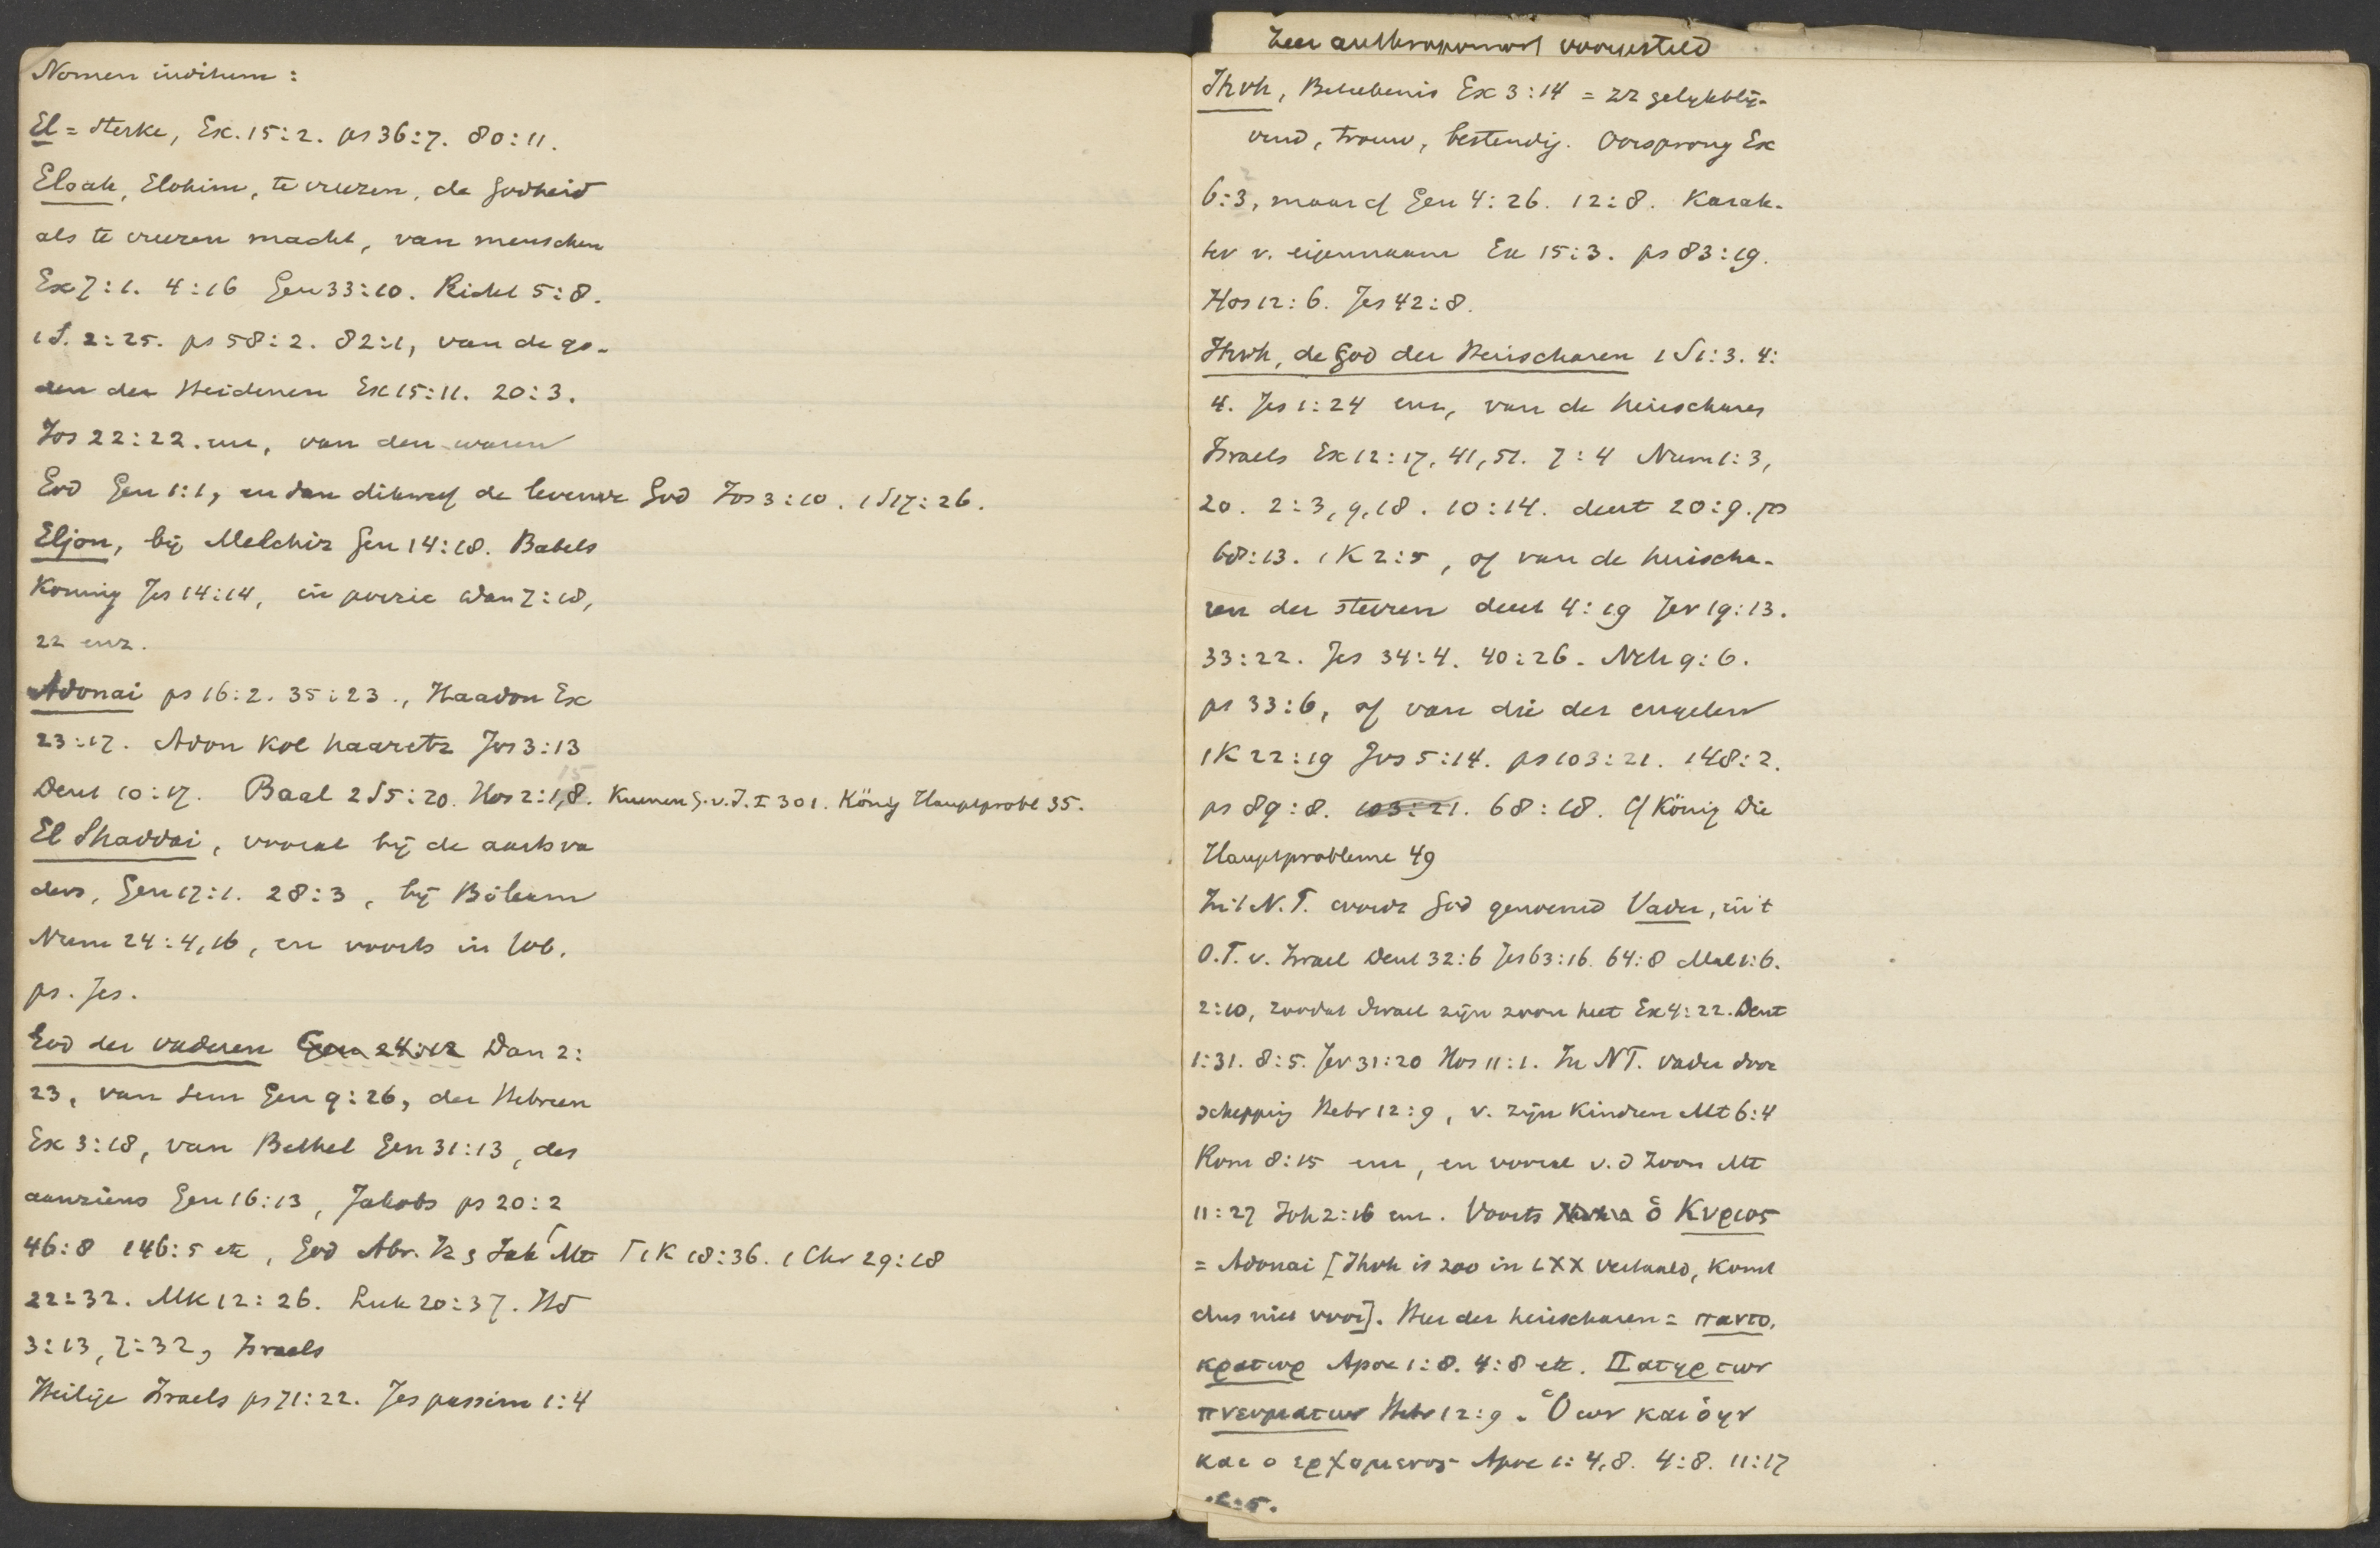 Nomen inditum :
El = sterke, Ex. 15:2. ps 36:7. 80:11.
Eloah, Elohim, te vreezen, de godheid
als te vreezen macht, van menschen
Ex 7:1. 4:16 Gen 33:10. Richt 5:8.
1 S. 2:25. ps 58:2. 82:1, van de go-
den der Heidenen Ex 15:11. 20:3.
Jos 22:22. enz, van den waren
God Gen 1:1, en dan dikwerf de levende God Jos 3:10. 1 S 17:26.
Eljon, bij Melchiz Gen 14:18. Babels
Koning Jes 14:14, in poezie Dan 7:18,
22 enz.
Adonai ps 16:2. 35:23., Haadon Ex
23:17. Adon kol haaretz Jos 3:13
Deut 10:17. Baal 2 S 5:20. Hos 2:15,8. Kuenen G.v.I. I 301. König Hauptprobl 35.
El Shaddai, vooral bij de aartsva
ders, Gen 17:1. 28:3, bij Bileam
Num 24:4,16, en voorts in Job.
ps. Jes.
God der vaderen Gen 24:12 Dan 2:
23, van Sem Gen 9:26, der Hebreen
Ex 3:18, van Bethel Gen 31:13, des
aanziens Gen 16:13, Jakobs ps 20:2
46:8 146:5 etc, God Abr. Iz & Jak Γ Mt Γ 1 K 18:36. 1 Chr 29:18
22:32. Mk 12:26. Luk 20:37. Hd
3:13, 7:32, Israels
Heilige Israels ps 71:22. Jes passim 1:4
Zeer anthropomorf voorgesteld
Jhvh, Beteekenis Ex 3:14 = zz gelijkblij-
vend, trouw, bestendig. Oorsprong Ex
6:3, maar cf Gen 4:26. 12:8. Karak-
ter v. eigennaam Ex 15:3. ps 83:19.
Hos 12:6. Jes 42:8.
Jhvh, de God der Heirscharen 1 S 1:3. 4:
4. Jes 1:24 enz, van de heirscharen
Israels Ex 12:17, 41, 51. 7:4 Num 1:3,
20. 2:3, 9, 18. 10:14. deut 20:9. ps
68:13. 1 K 2:5, of van de heirscha-
ren der sterren deut 4:19 Jer 19:13.
33:22. Jes 34:4. 40:26. Neh 9:6.
ps 33:6, of van die der engelen
1 K 22:19 Jos 5:14. ps 103:21. 148:2.
ps 89:8. 103:21. 68:18. Cf König Die
Hauptprobleme 49
In 't N.T. wordt God genoemd Vader, in 't
O.T. v. Israel Deut 32:6 Jes 63:16. 64:8 Mal 1:6.
2:10, zoodat Israel zijn zoon heet Ex 4:22. Deut
1:31. 8:5. Jer 31:20 Hos 11:1. In NT. vader door
schepping Hebr 12:9, v. zijn kindren Mt 6:4
Rom 8:15 enz, en vooral v. d Zoon Mt
11:27 Joh 2:16 enz. Voorts ὁ Κυριος
= Adonai [Jhvh is zoo in LXX vertaald, komt
dus niet voor]. Heer der heirscharen = παντο,
κρατωρ Apoc 1:8. 4:8 etc. Πατηρ των
πνευματων Hebr 12:9. Ὁ ων και ὁ ην
και ο ερχομενος Apoc 1:4,8. 4:8. 11:17